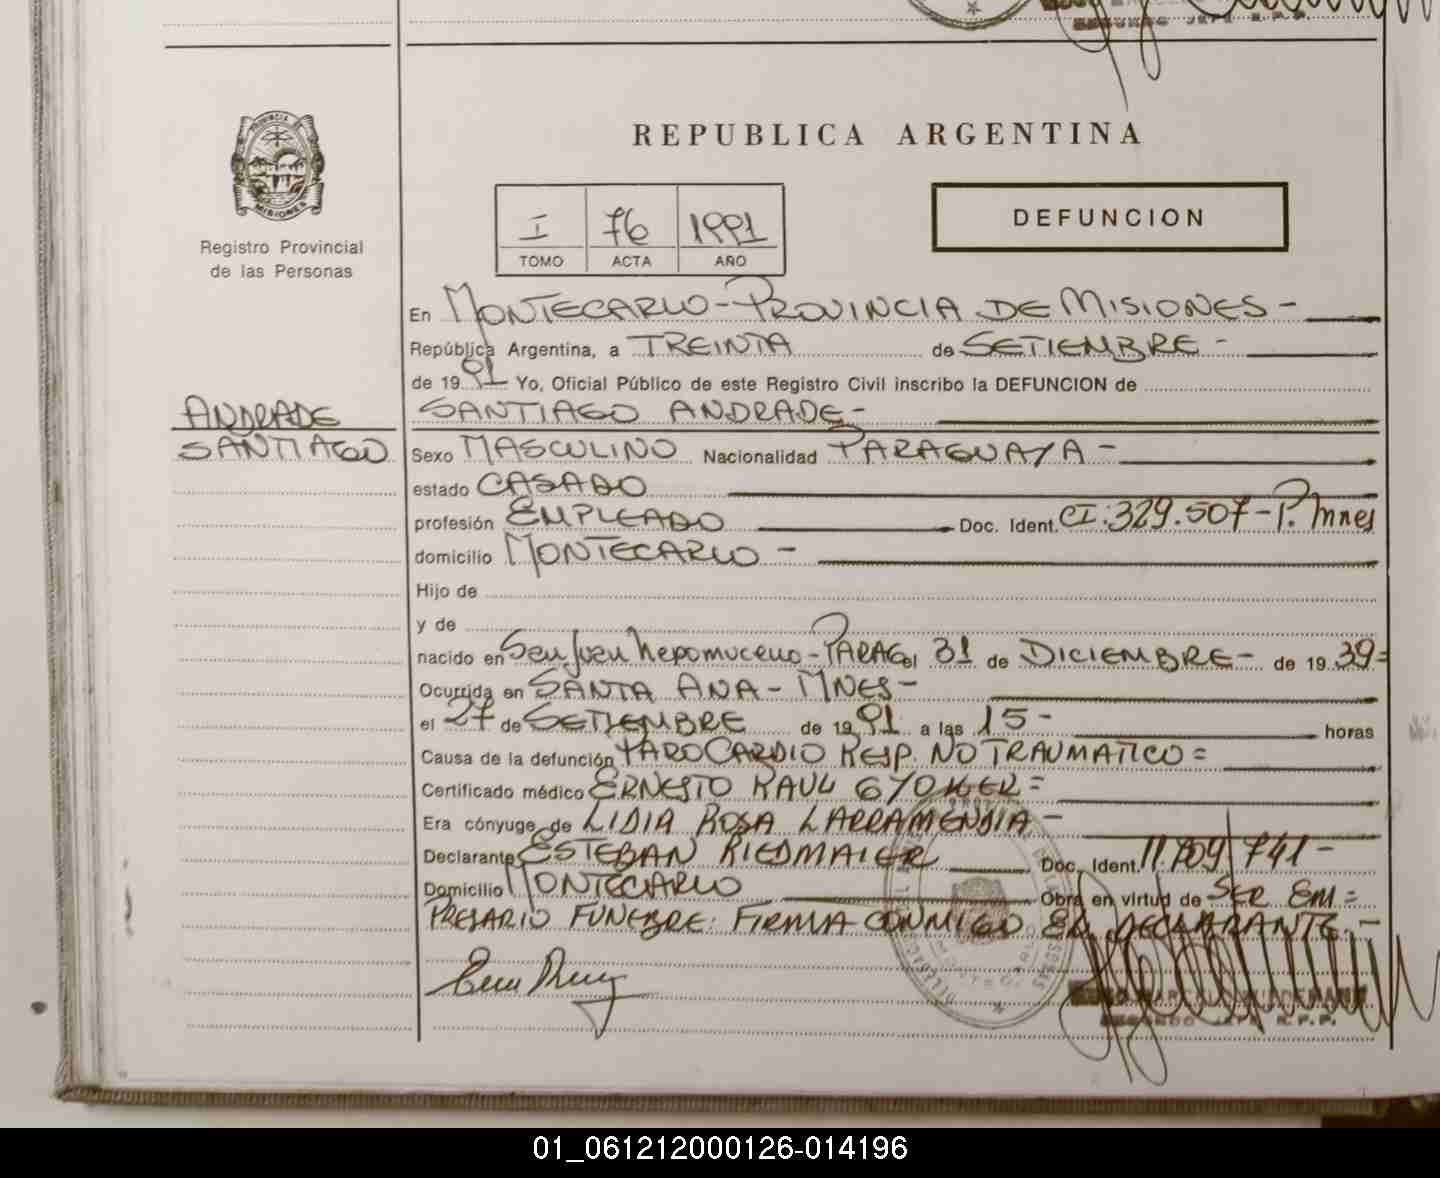 REPUBLICA ARGENTINA
PROVINCIA DE
MISIONES
Registro Provincial
de las Personas
I 76 1991
TOMO ACTA AÑO
DEFUNCION
En MONTECARLO - PROVINCIA DE MISIONES -
República Argentina, a TREINTA de SETIEMBRE -
de 19 91 Yo, Oficial Público de este Registro Civil inscribo la DEFUNCION de
ANDRADE
SANTIAGO
SANTIAGO ANDRADE -
Sexo MASCULINO Nacionalidad PARAGUAYA -
estado CASADO
profesión EMPLEADO Doc. Ident. CI: 329.507 - P. Mnes
domicilio MONTECARLO -
Hijo de
y de
nacido en San Juan Nepomuceno - PARAG el 31 de DICIEMBRE - de 19 39=
Ocurrida en SANTA ANA - MNES -
el 27 de SETIEMBRE de 19 91 a las 15 - horas
Causa de la defunción PARO CARDIO RESP. NO TRAUMATICO =
Certificado médico ERNESTO RAUL GYOKER =
Era cónyuge de LIDIA ROSA LARRAMENDIA -
Declarante ESTEBAN RIEDMAIER Doc. Ident. 11.709.741 -
Domicilio MONTECARLO Obra en virtud de SER EM=
PRESARIO FUNEBRE. FIRMA CONMIGO EL DECLARANTE. -
SEGUNDO JEFE R.P.P.
01_061212000126-014196